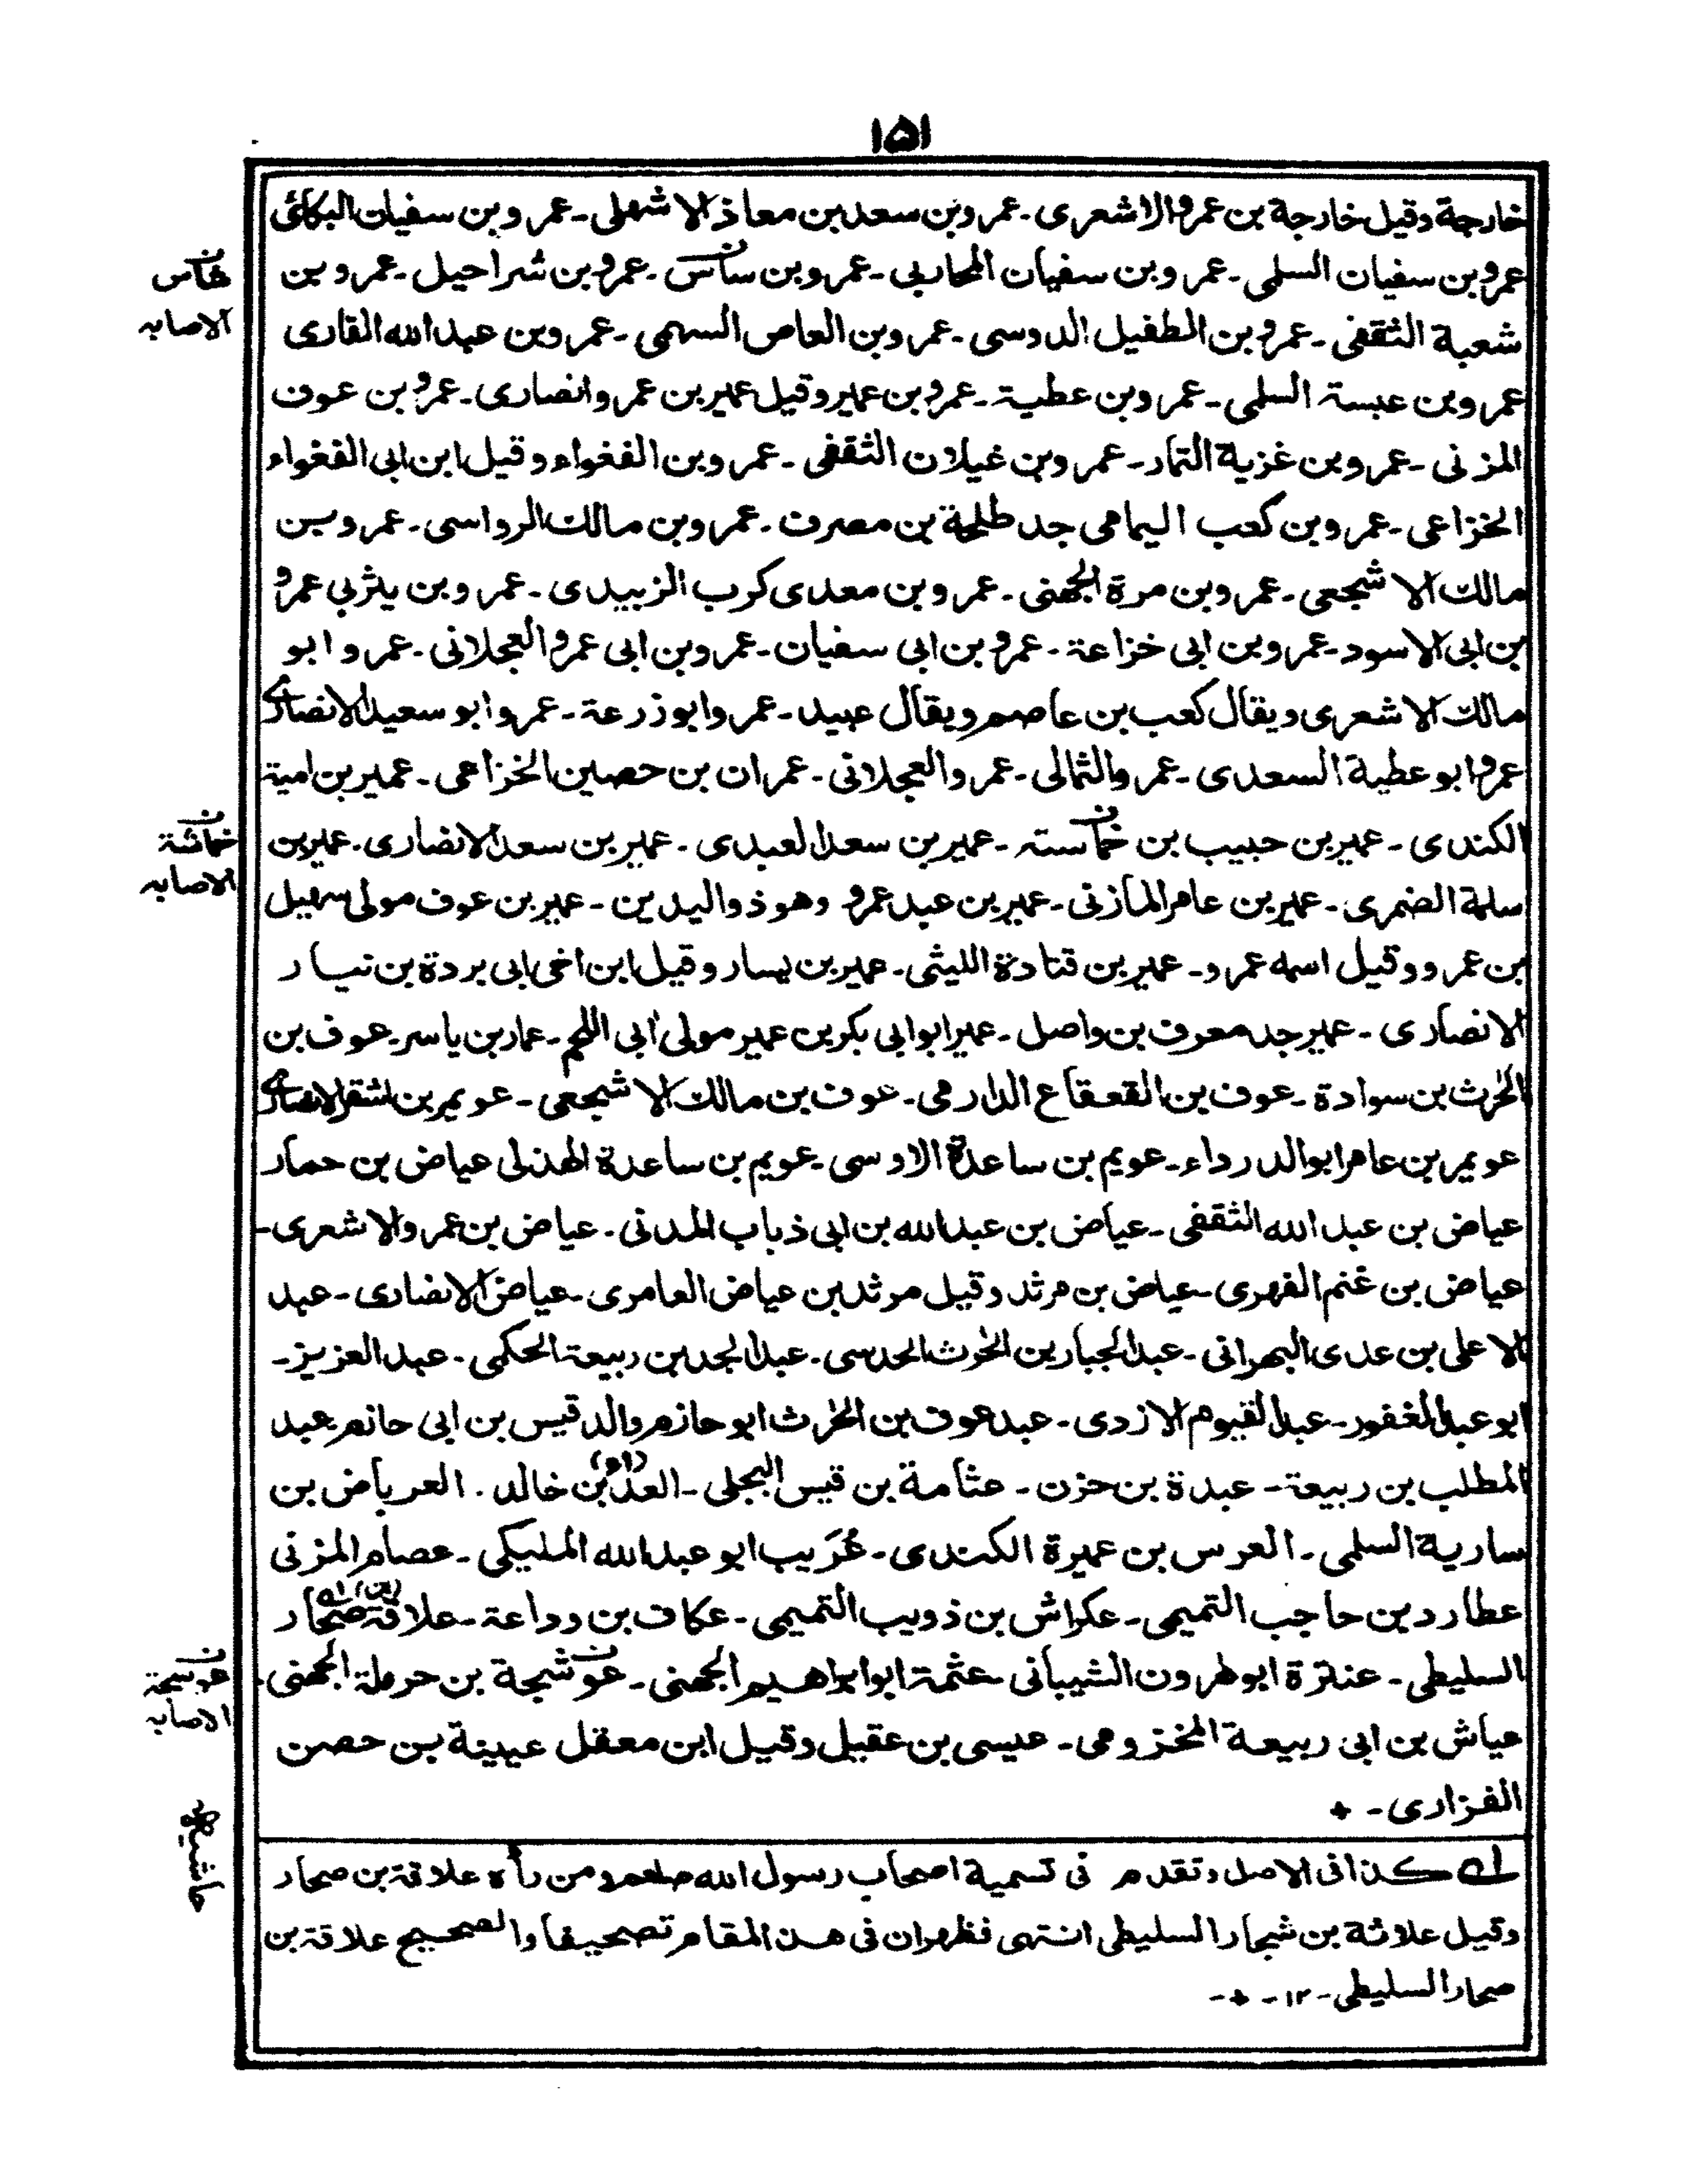 ١٥١
خارجة وقيل خارجة بن عمرو الاشعرى ـ عمرو بن سعد بن معاذ الاشهلى ـ عمرو بن سفيان البكائى
عمرو بن سفيان السلمى ـ عمرو بن سفيان المحاربى ـ عمرو بن ساس ـ عمرو بن شراحيل ـ عمرو بن
شعبة الثقفى ـ عمرو بن الطفيل الدوسى ـ عمرو بن العاص السهمى ـ عمرو بن عبد الله القارى
عمرو بن عبسة السلمى ـ عمرو بن عطية ـ عمرو بن عمير وقيل عمير بن عمرو انصارى ـ عمرو بن عوف
المزنى ـ عمرو بن غزية التمار ـ عمرو بن غيلان الثقفى ـ عمرو بن الفغواء وقيل ابن ابى الفغواء
الخزاعى ـ عمرو بن كعب اليامى جد طلحة بن مصرف ـ عمرو بن مالك الرواسى ـ عمرو بن
مالك الاشجعى ـ عمرو بن مرة الجهنى ـ عمرو بن معدى كرب الزبيدى ـ عمرو بن يثربى عمرو
بن ابى الاسود ـ عمرو بن ابى خزاعة ـ عمرو بن ابى سفيان ـ عمرو بن ابى عمرو العجلانى ـ عمرو ابو
مالك الاشعرى ويقال كعب بن عاصم ويقال عبيد ـ عمرو ابو زرعة ـ عمرو ابو سعيد الانصارى
عمرو ابو عطية السعدى ـ عمرو الثمالى ـ عمرو العجلانى ـ عمران بن حصين الخزاعى ـ عمير بن امية
الكندى ـ عمير بن حبيب بن خماسته ـ عمير بن سعد العبدى ـ عمير بن سعد الانصارى ـ عمير بن
سلمة الضمرى ـ عمير بن عامر المازنى ـ عمير بن عبد عمرو وهو ذو اليدين ـ عمير بن عوف مولى سهيل
بن عمرو وقيل اسمه عمرو ـ عمير بن قتادة الليثى ـ عمير بن يسار وقيل ابن اخى ابى بردة بن نيار
الانصارى ـ عمير جد معرف بن واصل ـ عمير ابو ابى بكر بن عمير مولى ابى اللحم ـ عمار بن ياسر ـ عوف بن
الحرث بن سوادة ـ عوف بن القعقاع الدارمى ـ عوف بن مالك الاشجعى ـ عويمر بن اشقر الانصارى
عويمر بن عامر ابو الدرداء ـ عويم بن ساعدة الاوسى ـ عويم بن ساعدة الهذلى عياض بن حمار
عياض بن عبد الله الثقفى ـ عياض بن عبد الله بن ابى ذباب المدنى ـ عياض بن عمرو الاشعرى ـ
عياض بن غنم الفهرى ـ عياض بن مرثد وقيل مرثد بن عياض العامرى ـ عياض الانصارى ـ عبد
الاعلى بن عدى البهرانى ـ عبد الجبار بن الحرث الحدسى ـ عبد الجد بن ربيعة الحكمى ـ عبد العزيز ـ
ابو عبد الغفور ـ عبد القيوم الازدى ـ عبد عوف بن الحرث ابو حازم والد قيس بن ابى حازم عبد
المطلب بن ربيعة ـ عبدة بن حزن ـ عثامة بن قيس البجلى ـ العد (اء) بن خالد ـ العرباض بن
سارية السلمى ـ العرس بن عميرة الكندى ـ عُرَيب ابو عبد الله المليكى ـ عصام المزنى
عطارد بن حاجب التميمى ـ عكراش بن ذويب التميمى ـ عكاف بن وداعة ـ علاقة (بن) صحار
السليطى ـ عنترة ابو هرون الشيبانى ـ عثمة ابو ابراهيم الجهنى ـ عوشجة بن حرملة الجهنى ـ
عياش بن ابى ربيعة المخزومى ـ عيسى بن عقيل وقيل ابن معقل عيينة بن حصن
الفزارى ـ +
له كذا فى الاصل وتقدم فى تسمية اصحاب رسول الله صلعم ومن رأه علاقة بن صحار
وقيل علاثة بن شجار السليطى انتهى فظهر ان فى هذا المقام تصحيفا والصحيح علاقة بن
صحار السليطى ـ ١٢ ـ + ـ
الاصابه
خماشة
الاصابه
عوسجة
الاصابه
حاشيه